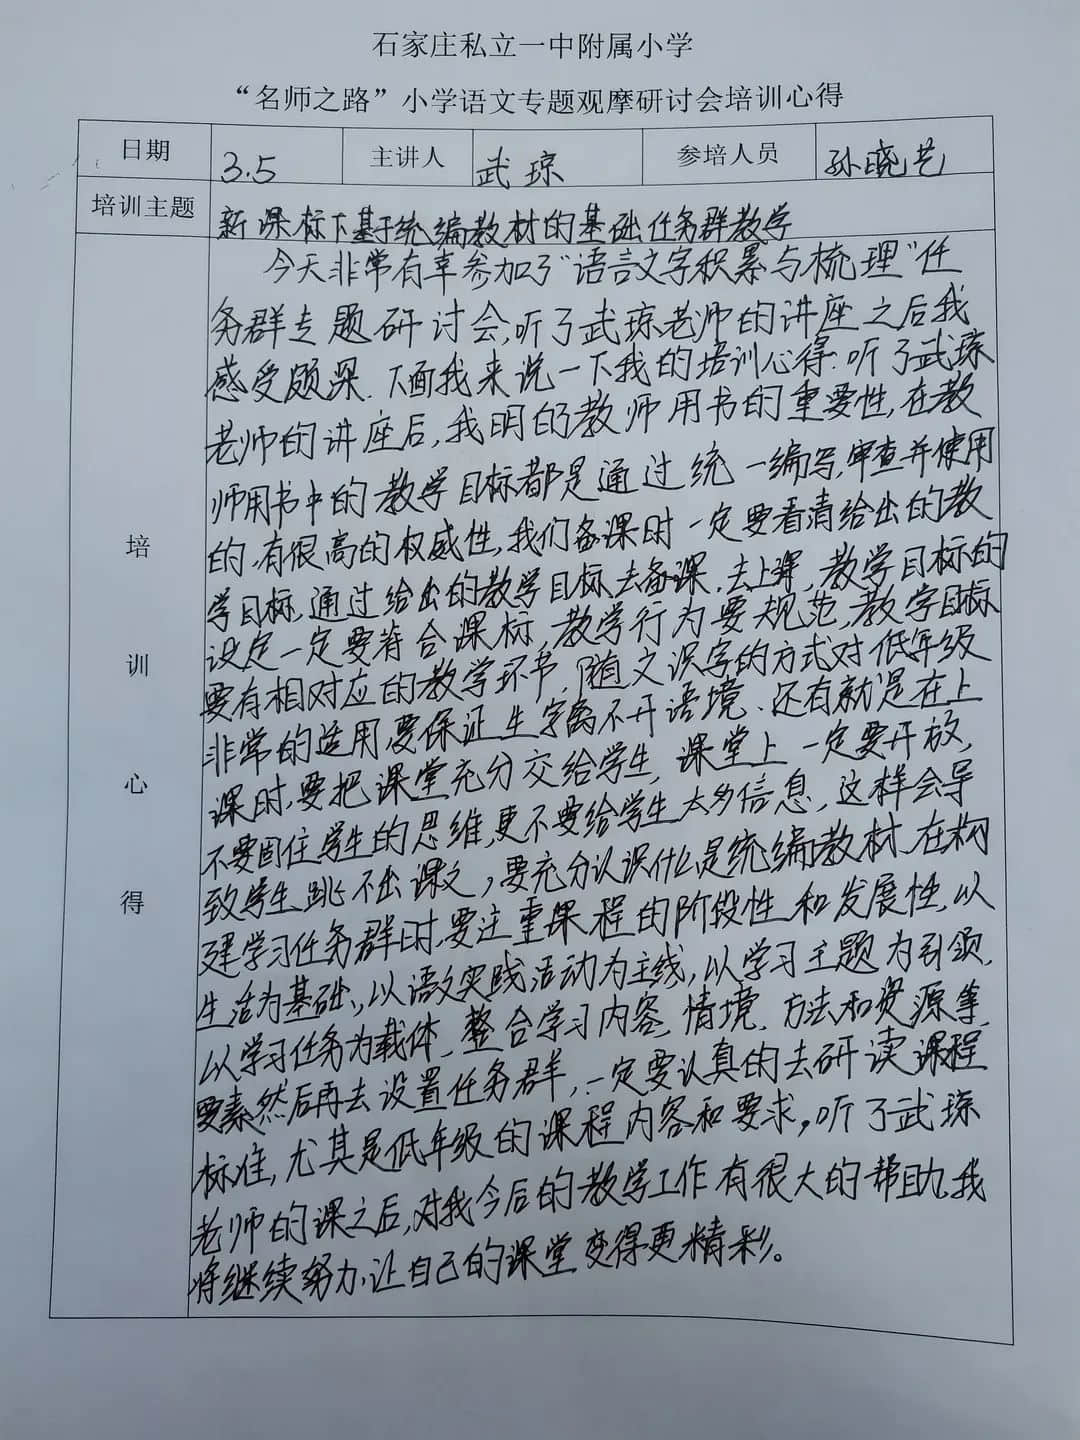 石家庄私立一中附属小学
“名师之路”小学语文专题观摩研讨会培训心得
日期 3.5 主讲人 武琼 参培人员 孙晓艺
培训主题 新课标下基于统编教材的基础任务群教学
培训心得
今天非常有幸参加了“语言文字积累与梳理”任
务群专题研讨会,听了武琼老师的讲座之后我
感受颇深.下面我来说一下我的培训心得:听了武琼
老师的讲座后,我明的教师用书的重要性,在教
师用书中的教学目标都是通过统一编写,审查并使用
的,有很高的权威性,我们备课时一定要看清给出的教
学目标,通过给出的教学目标去备课,去上课,教学目标的
设定一定要符合课标,教学行为要规范,教学目标
要有相对应的教学环节,随文识字的方式对低年级
非常的适用,要保证生字离不开语境.还有就是在上
课时,要把课堂充分交给学生,课堂上一定要开放,
不要固住学生的思维,更不要给学生太多信息,这样会导
致学生跳不出课文,要充分认识什么是统编教材.在构
建学习任务群时,要注重课程的阶段性和发展性,以
生活为基础,以语文实践活动为主线,以学习主题为引领,
以学习任务为载体,整合学习内容,情境,方法和资源等
要素然后再去设置任务群,一定要认真的去研读课程
标准,尤其是低年级的课程内容和要求,听了武琼
老师的课之后,对我今后的教学工作有很大的帮助,我
将继续努力,让自己的课堂变得更精彩。